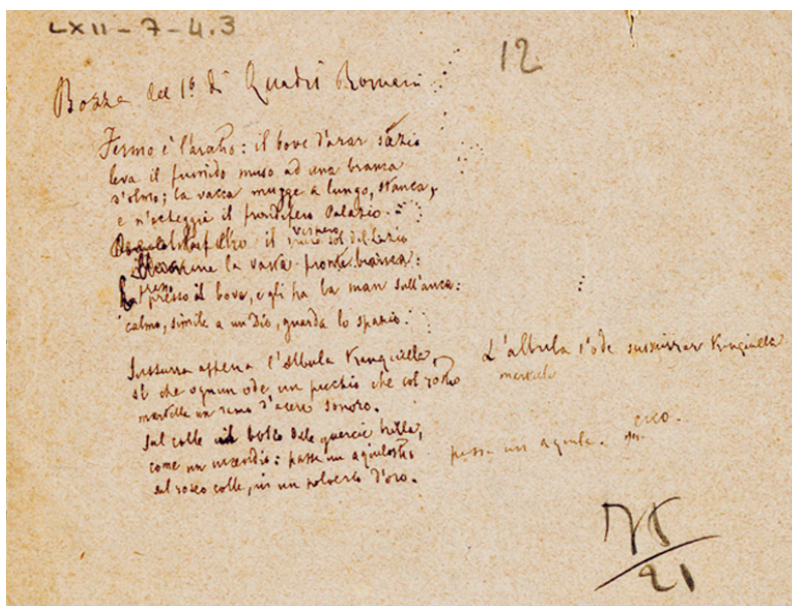 LXII-7-4.3
12
Bozze del 1º di Quadri Romani
Fermo è l'aratro: il bove d'arar sazio
leva il fumido muso ad una branca
d'olmo; la vacca mugge a lungo, stanca,
e n'echeggia il frondifero Palazio.
il vespero sol del Lazio
la vasta fronte bianca:
presso il bove, egli ha la man sull'anca:
calmo, simile a un Dio, guarda lo spazio.
Sussurra appena l'Albula tranquilla,
sì che ognun ode un picchio che col rostro
martella un ramo d'acero sonoro.
Sul colle il bosco delle quercie brilla,
come un incendio: passa un aquilastro
sul roseo colle, in un polverio d'oro.
L'albula s'ode sussurrar tranquilla
martella
passa un aquila.
75
21